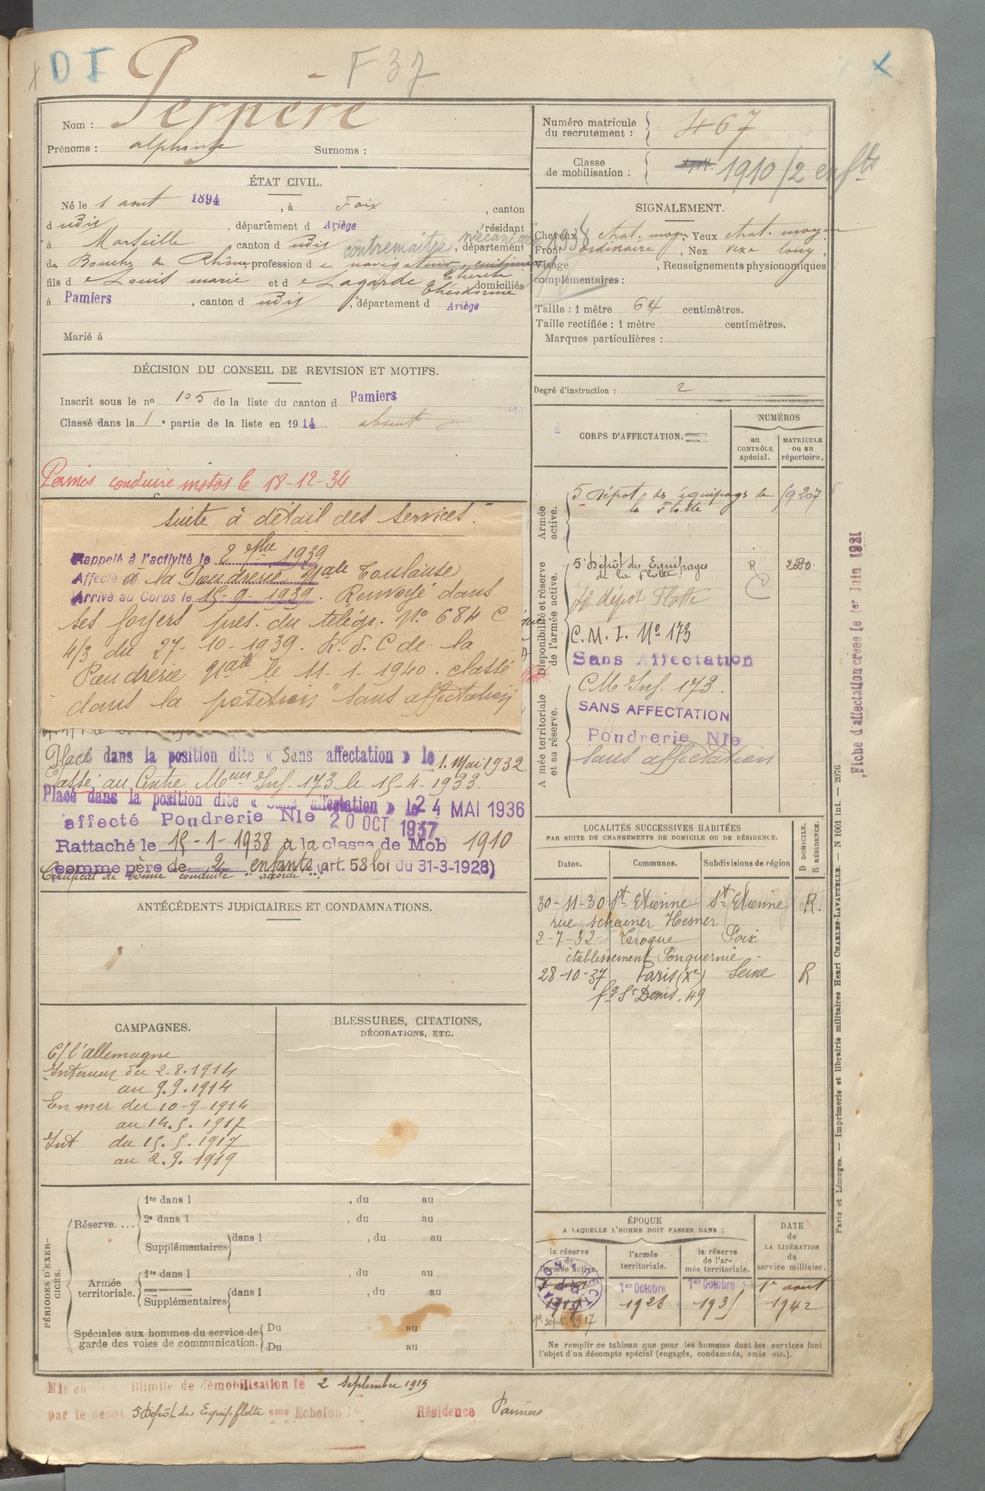 D I
F 37
Nom : Perpère
Prénoms : alphonse Surnoms :
ÉTAT CIVIL.
Né le 1 aout 1894, à Foix, canton
d udit, département d Ariège, résidant
à Marseille, canton d udit, département
des Bouches du Rhône, profession de navigateur
contremaître mécanicien
fils de Louis marie et de Lagarde Thérèse, domiciliés
à Pamiers, canton d udit, département d Ariège
Marié à
DÉCISION DU CONSEIL DE REVISION ET MOTIFS.
Inscrit sous le no 105 de la liste du canton d Pamiers
Classé dans la 1e partie de la liste en 1914. absent
Permis conduire motos le 18-12-34
suite à détail des services.
Rappelé à l'activité le 2 7bre 1939
Affecté à la Poudrerie Nale Toulouse
Arrivé au Corps le 15-9-1939. Renvoyé dans
ses foyers pres. du télégr. No 684 C
4/3 du 27-10-1939. R. d. C de la
Poudrerie Nale le 11-1-1940. classé
dans la position "sans affectation"
Placé dans la position dite « Sans affectation » le 1. Mai 1932
Passé au Centre Meur Inf. 173 le 15-4-1933.
Placé dans la position dite « Sans affectation » le 24 MAI 1936
affecté Poudrerie Nle 20 OCT 1937
Rattaché le 15-1-1938 à la classe de Mob 1910
comme père de 2 enfants (art. 58 loi du 31-3-1928)
Certificat de bonne conduite "accordé"
ANTÉCÉDENTS JUDICIAIRES ET CONDAMNATIONS.
CAMPAGNES.
C/ l'allemagne
Intérieur du 2-8-1914
au 9.9.1914
En mer du 10-9-1914
au 14.5.1917
Int du 15.5.1917
au 2.9.1919
BLESSURES, CITATIONS,
DÉCORATIONS, ETC.
PÉRIODES D'EXERCICES.
Réserve....
1re dans l , du au
2e dans l , du au
Supplémentaires dans l , du au
Armée territoriale.
1re dans l , du au
Supplémentaires dans l , du au
Spéciales aux hommes du service de garde des voies de communication.
Du au
Du au
Numéro matricule du recrutement : 467
Classe de mobilisation : 1910 / 2 enfts
SIGNALEMENT.
Cheveux chat. moy. Yeux chat. moyen
Front ordinaire, Nez rix. long,
Visage , Renseignements physionomiques
complémentaires :
Taille : 1 mètre 64 centimètres.
Taille rectifiée : 1 mètre centimètres.
Marques particulières :
Degré d'instruction : 2
CORPS D'AFFECTATION.
NUMÉROS
au CONTRÔLE spécial.
MATRICULE ou au répertoire.
Armée active.
5 Dépôt des équipages de la Flotte 19207
Disponibilité et réserve de l'armée active.
5e Dépôt des Equipages de la flotte R 2880
5e dépot Flotte
C.M.I. No 173
Sans Affectation
Armée territoriale et sa réserve.
C.M. Inf. 173.
SANS AFFECTATION
Poudrerie Nle
Sans affectation
LOCALITÉS SUCCESSIVES HABITÉES
PAR SUITE DE CHANGEMENTS DE DOMICILE OU DE RÉSIDENCE.
Dates. Communes. Subdivisions de région
D. DOMICILE.
R. RÉSIDENCE.
30-11-30 St Etienne St Etienne R.
2-7-32 Laroque Foix
28-10-37 Paris (Xe) Seine R
fg St Denis, 49
ÉPOQUE
A LAQUELLE L'HOMME DOIT PASSER DANS :
la réserve de l'armée active.
l'armée territoriale.
la réserve de l'armée territoriale.
DATE de LA LIBÉRATION du service militaire.
1er sept. 1917
1er Octobre 1928
1er Octobre 1935
1er aout 1942
Ne remplir ce tableau que pour les hommes dont les services font
l'objet d'un décompte spécial (engagés, condamnés, omis, etc.).
Mis en illimité de démobilisation le 2 Septembre 1919
par le dépôt 5 Dépôt des Equip. flotte eme Echelon Résidence Pamiers
Fiche d'affectation créée le 1er Juin 1921
Paris et Limoges. — Imprimerie et librairie militaires Henri CHARLES-LAVAUZELLE. — N 1001 int. — 2076